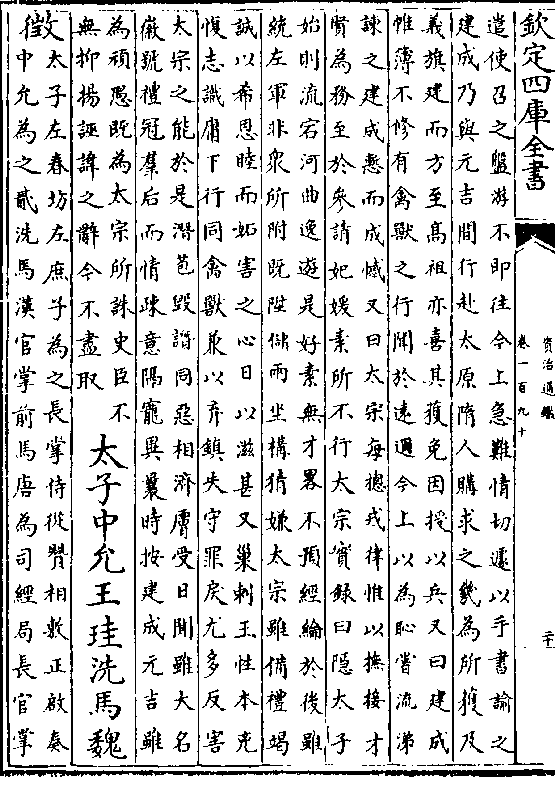 欽定四庫全書
資治通鑑
卷一百九十
二十
遣使召之盤游不即往今上急難情切遽以手書諭之
建成乃與元吉間行赴太原隋人購求之幾為所獲及
義旗建而方至高祖亦喜其獲免因授以兵又曰建成
帷薄不修有禽獸之行聞於遠邇今上以為恥嘗流涕
諫之建成慙而成憾又曰太宗每總戎律惟以撫接才
賢為務至於參請妃媛素所不行太宗實錄曰隱太子
始則流宕河曲逸遊是好素無才畧不預經綸於後雖
統左軍非衆所附既陞儲兩坐構猜嫌太宗雖備禮竭
誠以希恩睦而妬害之心日以滋甚又巢剌王性本兇
愎志識庸下行同禽獸兼以弃鎮失守罪戾尤多反害
太宗之能於是潛苞毀譖同惡相濟膚受日聞雖大名
徽號禮冠羣后而情疎意隔寵異曩時按建成元吉雖
為頑愚既為太宗所誅史臣不
無抑揚誣諱之辭今不盡取
太子中允王珪洗馬魏
徵
太子左春坊左庶子為之長掌侍從贊相敷正啟奏
中允為之貳洗馬漢官掌前馬唐為司經局長官掌